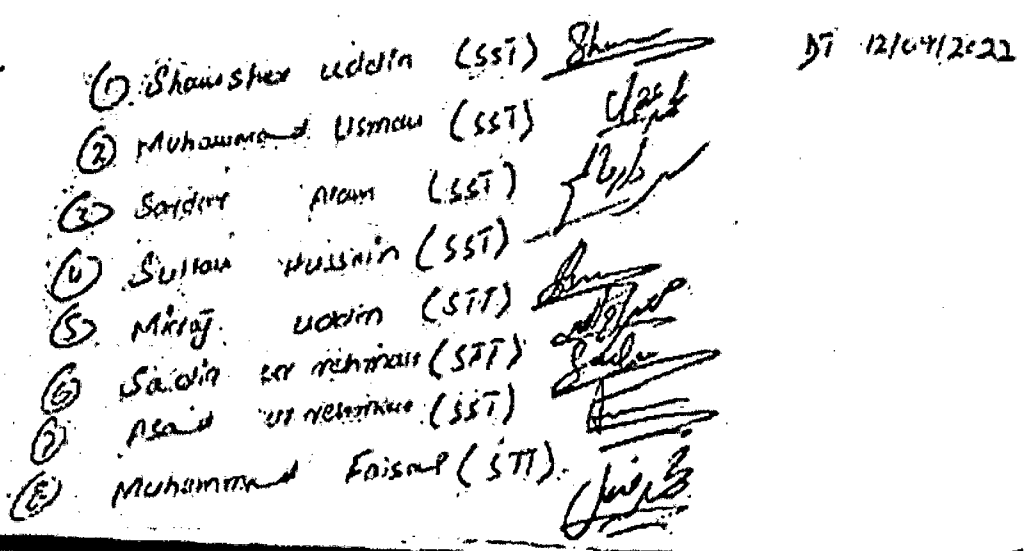 DT 12/04/2022
① Shamsher uddin (SST)
② Muhammad Usman (SST)
③ Sardar Alam (SST)
④ Sultan Hussain (SST)
⑤ Miraj uddin (STT)
⑥ ur rehman (STT)
⑦ Asad ur rehman (SST)
⑧ Muhammad Faisal (STT).